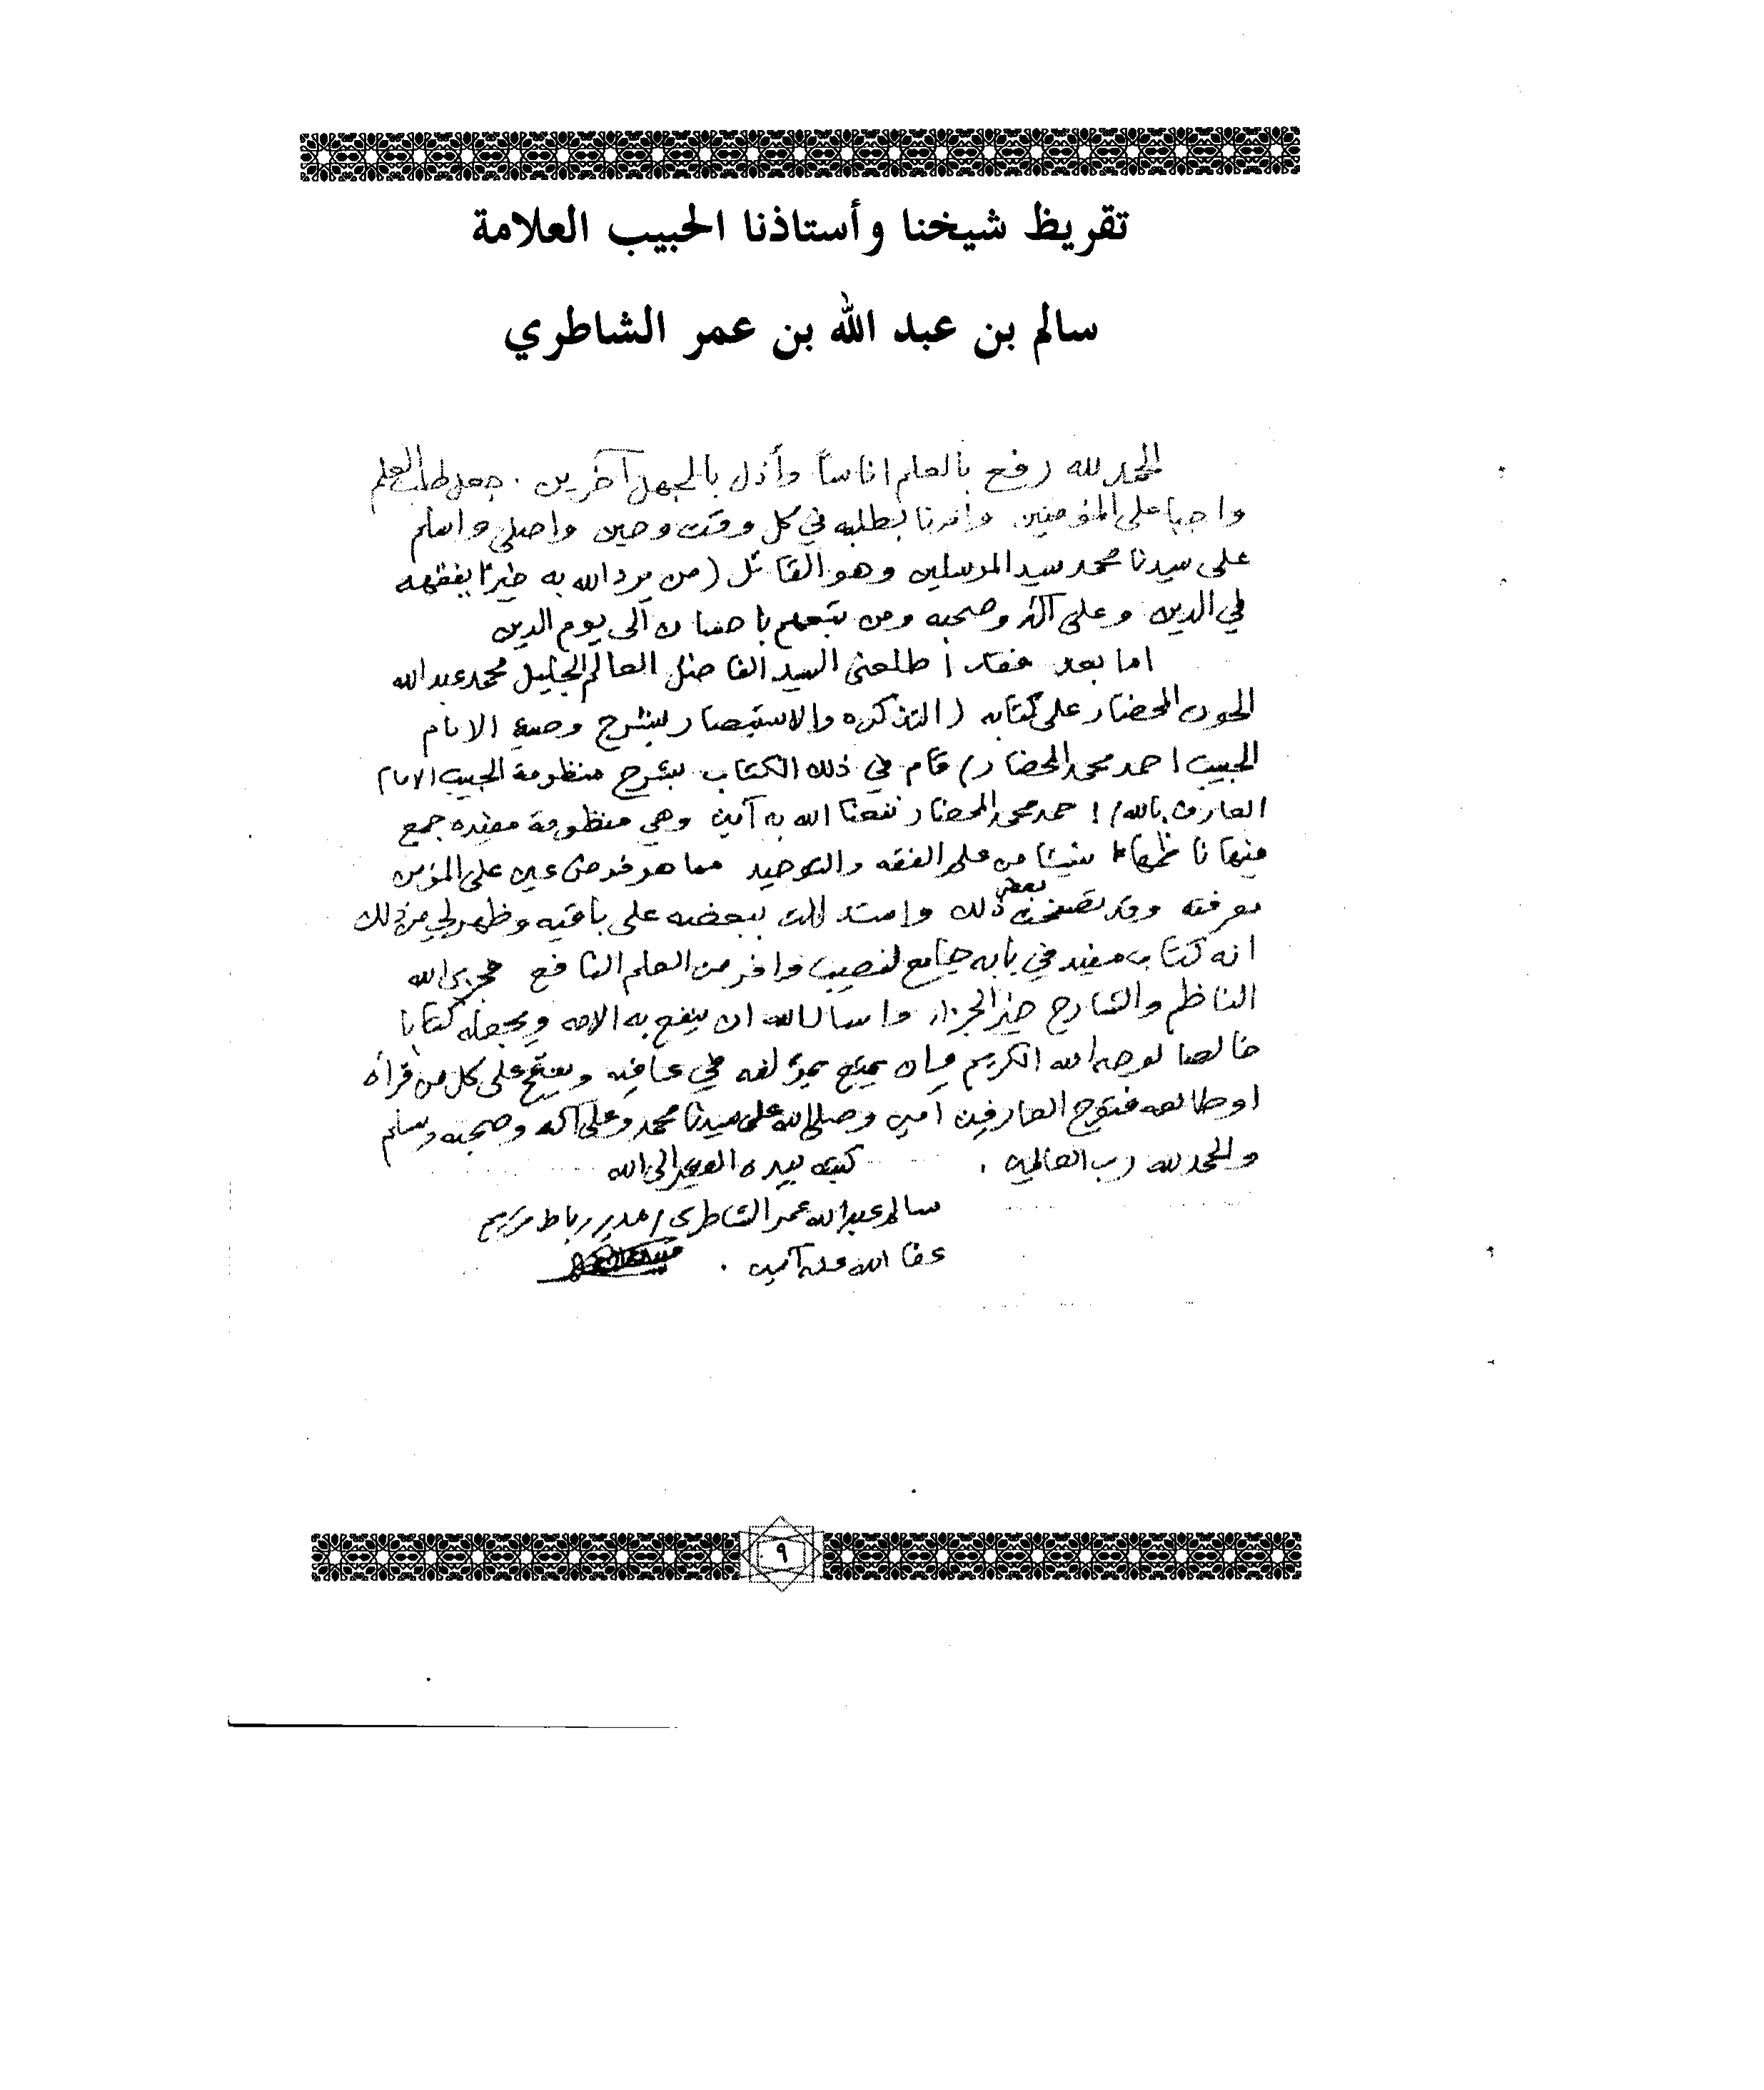 تقريظ شيخنا وأستاذنا الحبيب العلامة
سالم بن عبد الله بن عمر الشاطري
الحمد لله رفع بالعلم اناساً وأذل بالجهل آخرين . جعل طلب العلم
واجبا على المؤمنين وأمرنا بطلبه في كل وقت وحين واصلي واسلم
على سيدنا محمد سيد المرسلين وهو القائل (من يرد الله به خيرًا يفقهه
في الدين وعلى آله وصحبه ومن تبعهم باحسان الى يوم الدين
اما بعد فقد أطلعني السيد الفاضل العالم الجليل محمد عبدالله
الحوت المحضار على كتابه (التذكره والاستبصار بشرح وصية الامام
الحبيب احمد محمد المحضار) قام في ذلك الكتاب بشرح منظومة الحبيب الامام
العارف بالله / احمد محمد المحضار نفعنا الله به آمين وهي منظومة مفيده جمع
فيها ناظمها شيئا من علم الفقه والتوحيد مما هو فرض عين على المؤمن
معرفته وقد تصفحت بعض ذلك واستدللت ببعضه على باقيه وظهر لي من ذلك
انه كتاب مفيد في بابه جامع لنصيب وافر من العلم النافع فجزى الله
الناظم والشارح خير الجزاء واسال الله ان ينفع به الامه ويجعله كتابا
خالصا لوجه الله الكريم وان يمتع بمؤلفه في عافيه ويفتح على كل من قرأه
او طالعه فتوح العارفين آمين وصلى الله على سيدنا محمد وعلى آله وصحبه وسلم
والحمد لله رب العالمين . كتبه بيده الفقير الى الله
سالم عبدالله عمر الشاطري / مدير رباط تريم
عفا الله عنه آمين .
٩